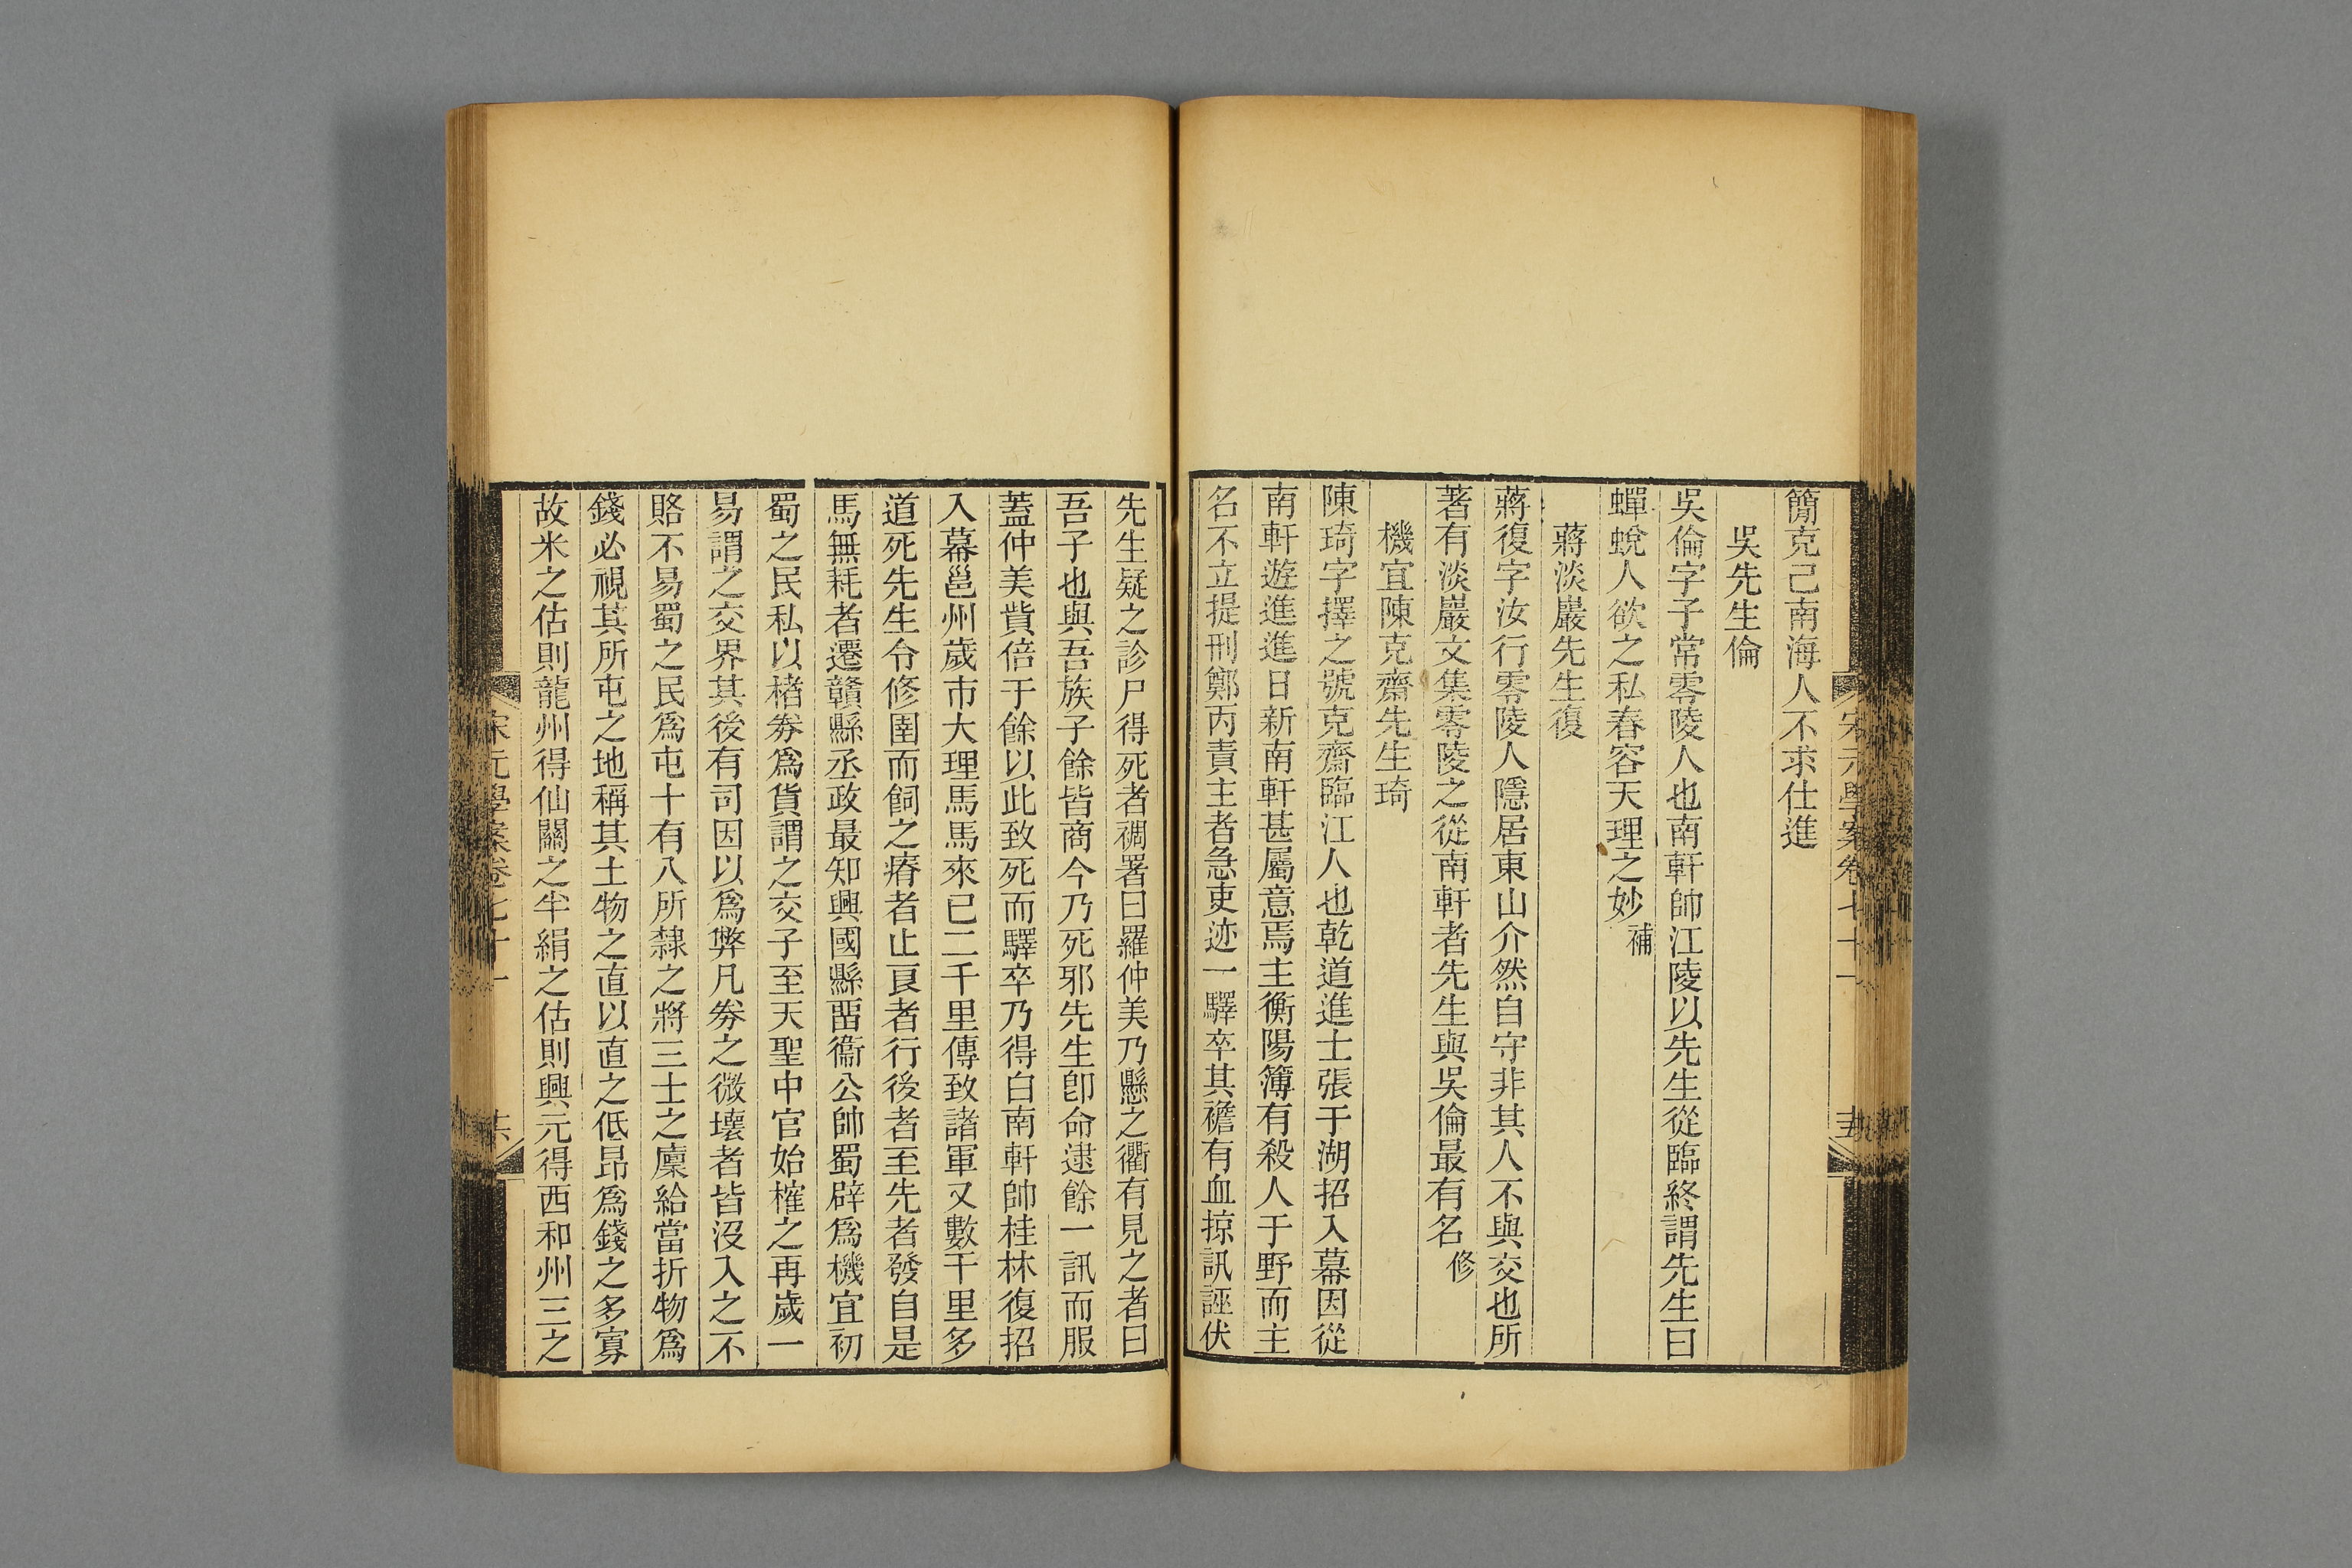 簡克己南海人不求仕進
吳先生倫
吳倫字子常零陵人也南軒帥江陵以先生從臨終謂先生曰
蟬蛻人欲之私春容天理之妙補
蔣淡巖先生復
蔣復字汝行零陵人隱居東山介然自守非其人不與交也所
著有淡巖文集零陵之從南軒者先生與吳倫最有名修
機宜陳克齋先生琦
陳琦字擇之號克齋臨江人也乾道進士張于湖招入幕因從
南軒遊進進日新南軒甚屬意焉主衡陽簿有殺人于野而主
名不立提刑鄭丙責主者急吏迹一驛卒其襜有血掠訊誣伏
宋元學案卷七十一
先生疑之診尸得死者裯署曰羅仲美乃懸之衢有見之者曰
吾子也與吾族子餘皆商今乃死邪先生卽命逮餘一訊而服
蓋仲美貲倍于餘以此致死而驛卒乃得白南軒帥桂林復招
入幕邕州歲市大理馬馬來已二千里傳致諸軍又數千里多
道死先生令修圉而飼之瘠者止良者行後者至先者發自是
馬無耗者遷贛縣丞政最知興國縣畱衞公帥蜀辟爲機宜初
蜀之民私以楮券爲貨謂之交子至天聖中官始榷之再歲一
易謂之交界其後有司因以爲弊凡券之微壞者皆沒入之不
賂不易蜀之民爲屯十有八所隸之將三士之廩給當折物爲
錢必視其所屯之地稱其土物之直以直之低昂爲錢之多寡
故米之估則龍州得仙關之半絹之估則興元得西和州三之
宋元學案卷七十一